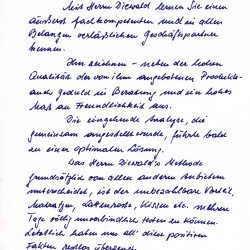 Mit Herrn Diewald lernen Sie einen
äußerst fachkompetenten und in allen
Belangen verlässlichen Geschäftspartner
kennen.
Ihn zeichnen - neben der hohen
Qualität der von ihm angebotenen Produkte -
auch Geduld in Beratung und ein hohes
Maß an Freundlichkeit aus.
Die eingehende Analyse, die
gemeinsam ausgearbeitet wurde, führte bald
zu einer optimalen Lösung.
Das Herrn Diewald's Methode
grundsätzlich von allen anderen Anbietern
unterscheidet, ist der unbezahlbare Vorteil,
Matratzen, Lattenroste, Kissen etc. mehrere
Tage völlig unverbindlich testen zu können.
Letztlich haben uns all' diese positiven
Fakten restlos überzeugt.